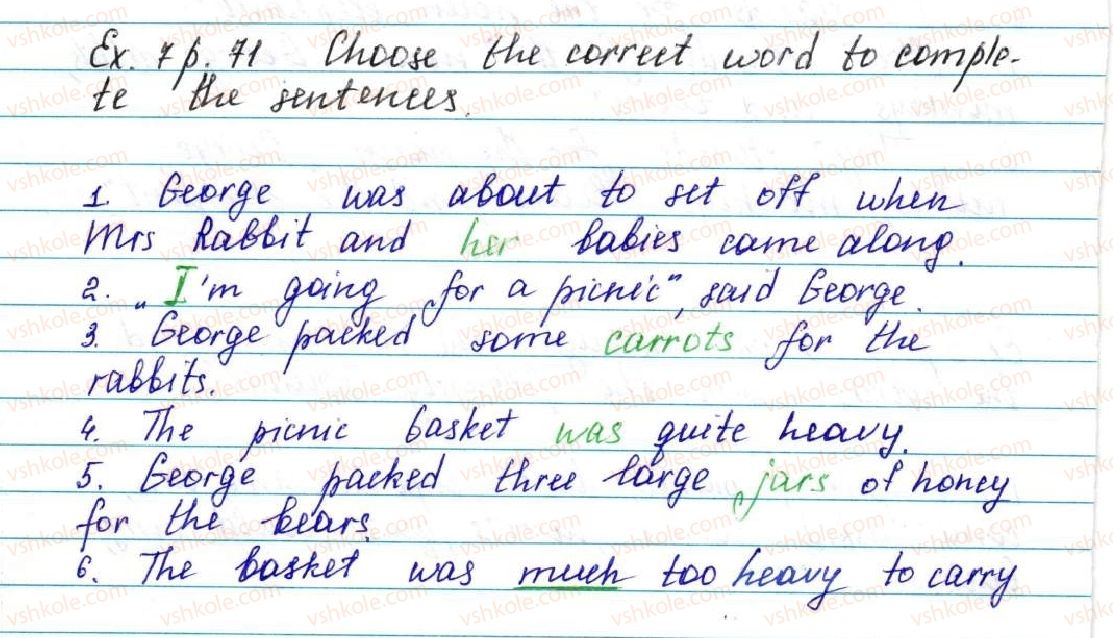 Ex. 7 p. 71 Choose the correct word to comple-
te the sentences.
1. George was about to set off when
Mrs Rabbit and her babies came along.
2. „I'm going for a picnic", said George.
3. George packed some carrots for the
rabbits.
4. The picnic basket was quite heavy.
5. George packed three large jars of honey
for the bears.
6. The basket was much too heavy to carry